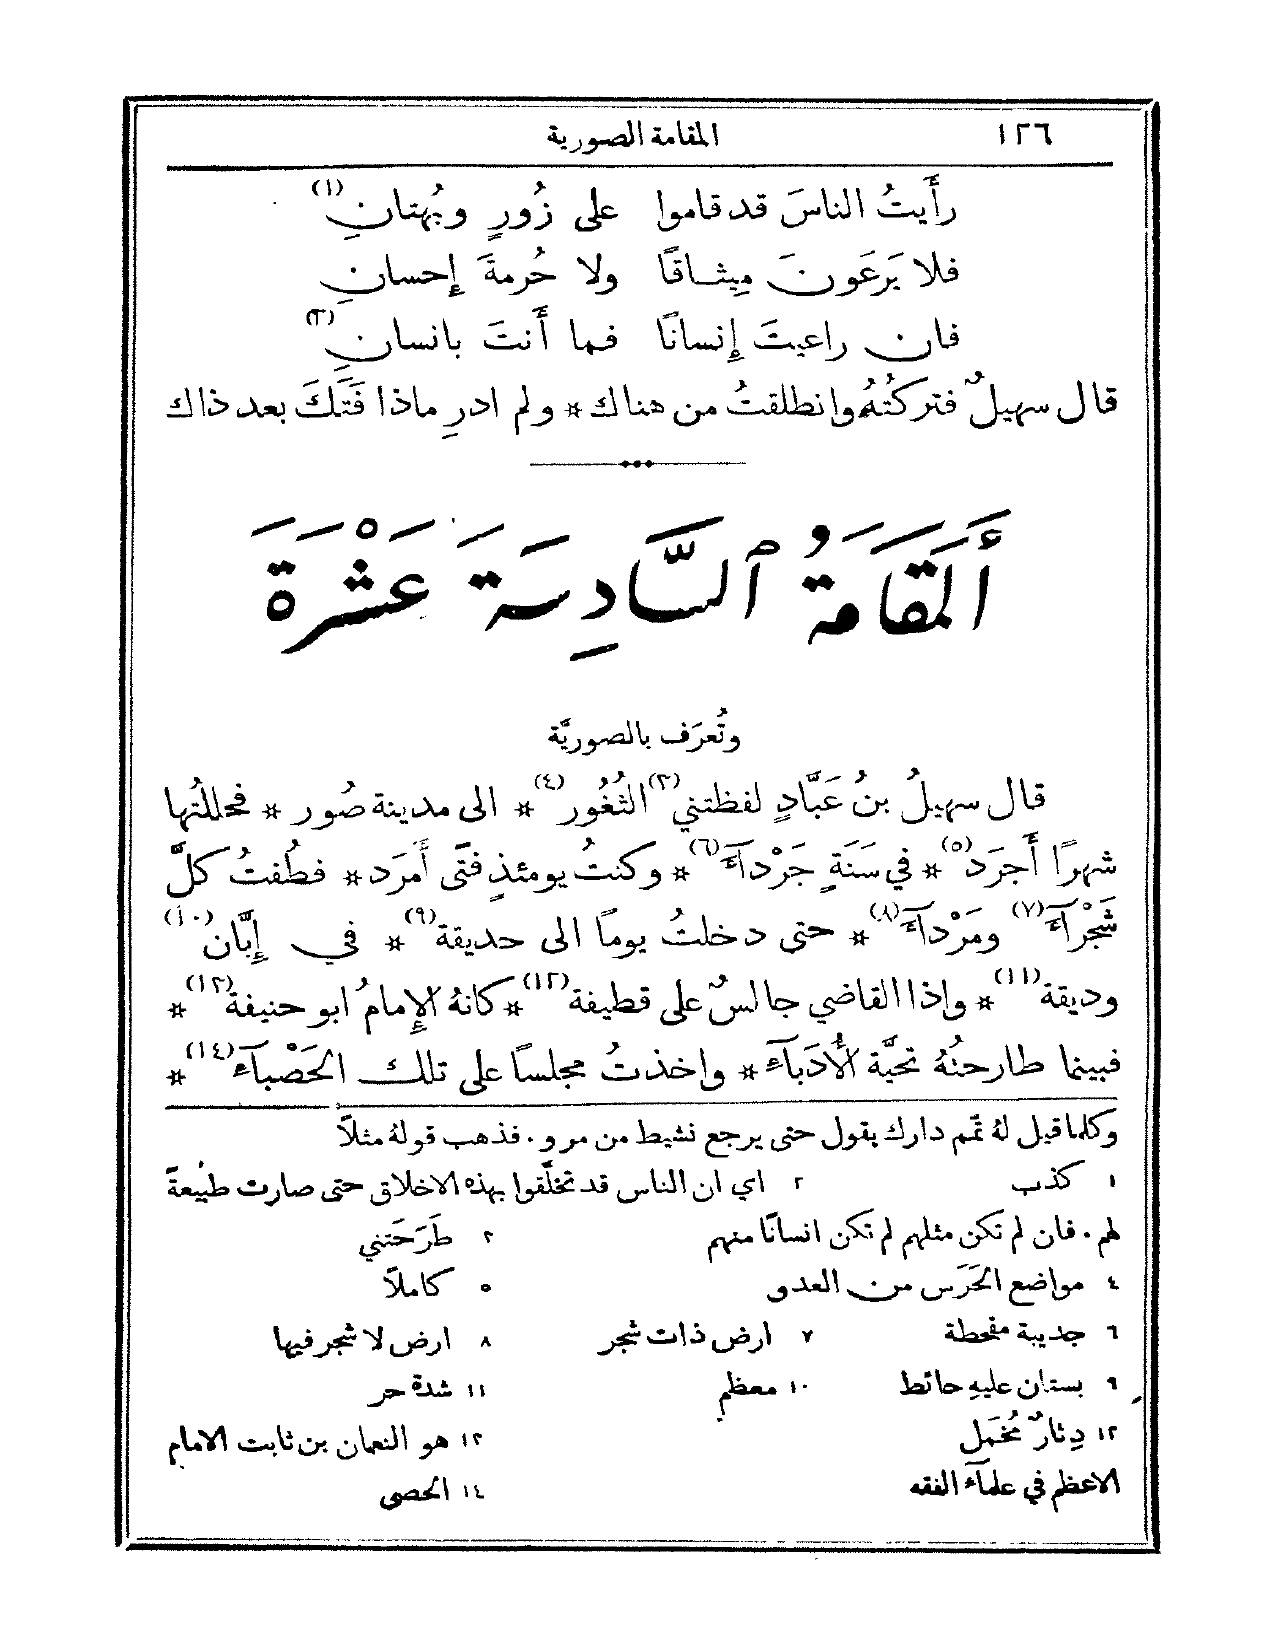 ١٢٦ المقامة الصورية
رأَيتُ الناسَ قد قاموا على زُورٍ وبُهتانِ (١)
فلا يَرعَونَ مِيثاقًا ولا حُرمةَ إِحسانِ
فان راعيتَ إِنسانًا فما أَنتَ بانسانِ (٢)
قال سهيلٌ فتركتُهُ وانطلقتُ من هناك * ولم ادرِ ماذا فَتَكَ بعد ذاك
أَلمَقَامَةُ ٱلسَّادِسَةَ عَشْرَةَ
وتُعرَف بالصوريَّة
قال سهيلُ بنُ عَبَّادٍ لفظتني (٣) الثُغُور (٤) * الى مدينة صُور * فحللتُها
شهرًا أَجرَد (٥) * في سَنَةٍ جَرْدآءَ (٦) * وكنتُ يومئذٍ فتًى أَمرَد * فطُفتُ كلَّ
شَجْرآءَ (٧) ومَرْدآءَ (٨) * حتى دخلتُ يومًا الى حديقة (٩) * في إِبَّان (١٠)
وديقة (١١) * واذا القاضي جالسٌ على قطيفة (١٢) * كانهُ الإِمامُ ابو حنيفة (١٣) *
فبينما طارحتُهُ تحيَّة الأُدَبآءَ * واخذتُ مجلسًا على تلك الحَصْبآءَ (١٤) *
وكلما قيل لهُ تمّم دارك يقول حتى يرجع نشيط من مرو . فذهب قولهُ مثلًا
١ كذب ٢ اي ان الناس قد تخلَّقوا بهذه الاخلاق حتى صارت طبيعةً
لهم . فان لم تكن مثلهم لم تكن انسانًا منهم ٣ طَرَحَتني
٤ مواضع الحَرَس من العدو ٥ كاملًا
٦ جديبة مقحطة ٧ ارض ذات شجر ٨ ارض لا شجر فيها
٩ بستان عليهِ حائط ١٠ معظم ١١ شدة حر
١٢ دِثارٌ مُخمَل ١٣ هو النعمان بن ثابت الامام
الاعظم في علمآء الفقه ١٤ الحصى